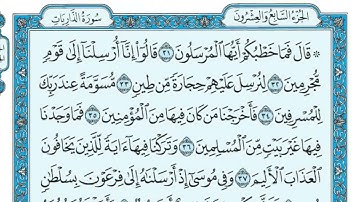 الجزء السابع والعشرون
سورة الذاريات
۞ قَالَ فَمَا خَطْبُكُمْ أَيُّهَا ٱلْمُرْسَلُونَ ٣١ قَالُوٓا۟ إِنَّآ أُرْسِلْنَآ إِلَىٰ قَوْمٍ
مُّجْرِمِينَ ٣٢ لِنُرْسِلَ عَلَيْهِمْ حِجَارَةً مِّن طِينٍ ٣٣ مُّسَوَّمَةً عِندَ رَبِّكَ
لِلْمُسْرِفِينَ ٣٤ فَأَخْرَجْنَا مَن كَانَ فِيهَا مِنَ ٱلْمُؤْمِنِينَ ٣٥ فَمَا وَجَدْنَا
فِيهَا غَيْرَ بَيْتٍ مِّنَ ٱلْمُسْلِمِينَ ٣٦ وَتَرَكْنَا فِيهَآ ءَايَةً لِّلَّذِينَ يَخَافُونَ
ٱلْعَذَابَ ٱلْأَلِيمَ ٣٧ وَفِى مُوسَىٰٓ إِذْ أَرْسَلْنَٰهُ إِلَىٰ فِرْعَوْنَ بِسُلْطَٰنٍ